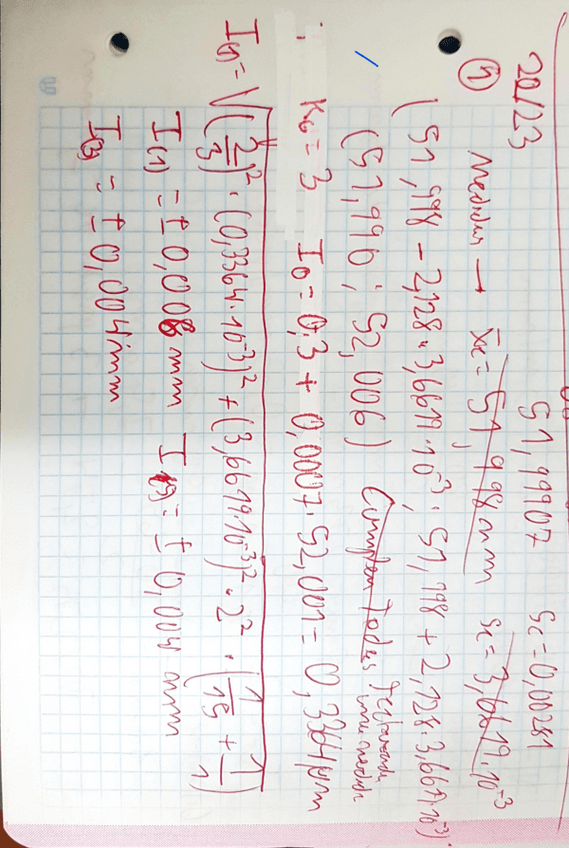 20/23 51,99907 Sc=0,00281
① Medidas → x̄c = 51,998mm Sc = 3,6619·10⁻³
(51,998 - 2,128·3,6619·10⁻³ ; 51,998 + 2,128·3,6619·10⁻³)
(51,990 ; 52,006) Cumplen Todas
K₀ = 3 I₀ = 0,3 + 0,0007·52,001 = 0,3364µm
I(1) = √((2/3)²·(0,3364·10⁻³)² + (3,6619·10⁻³)²·2²·(1/15 + 1/1))
I(1) = ± 0,008 mm I(3) = ± 0,004 mm
I(3) = ± 0,004mm